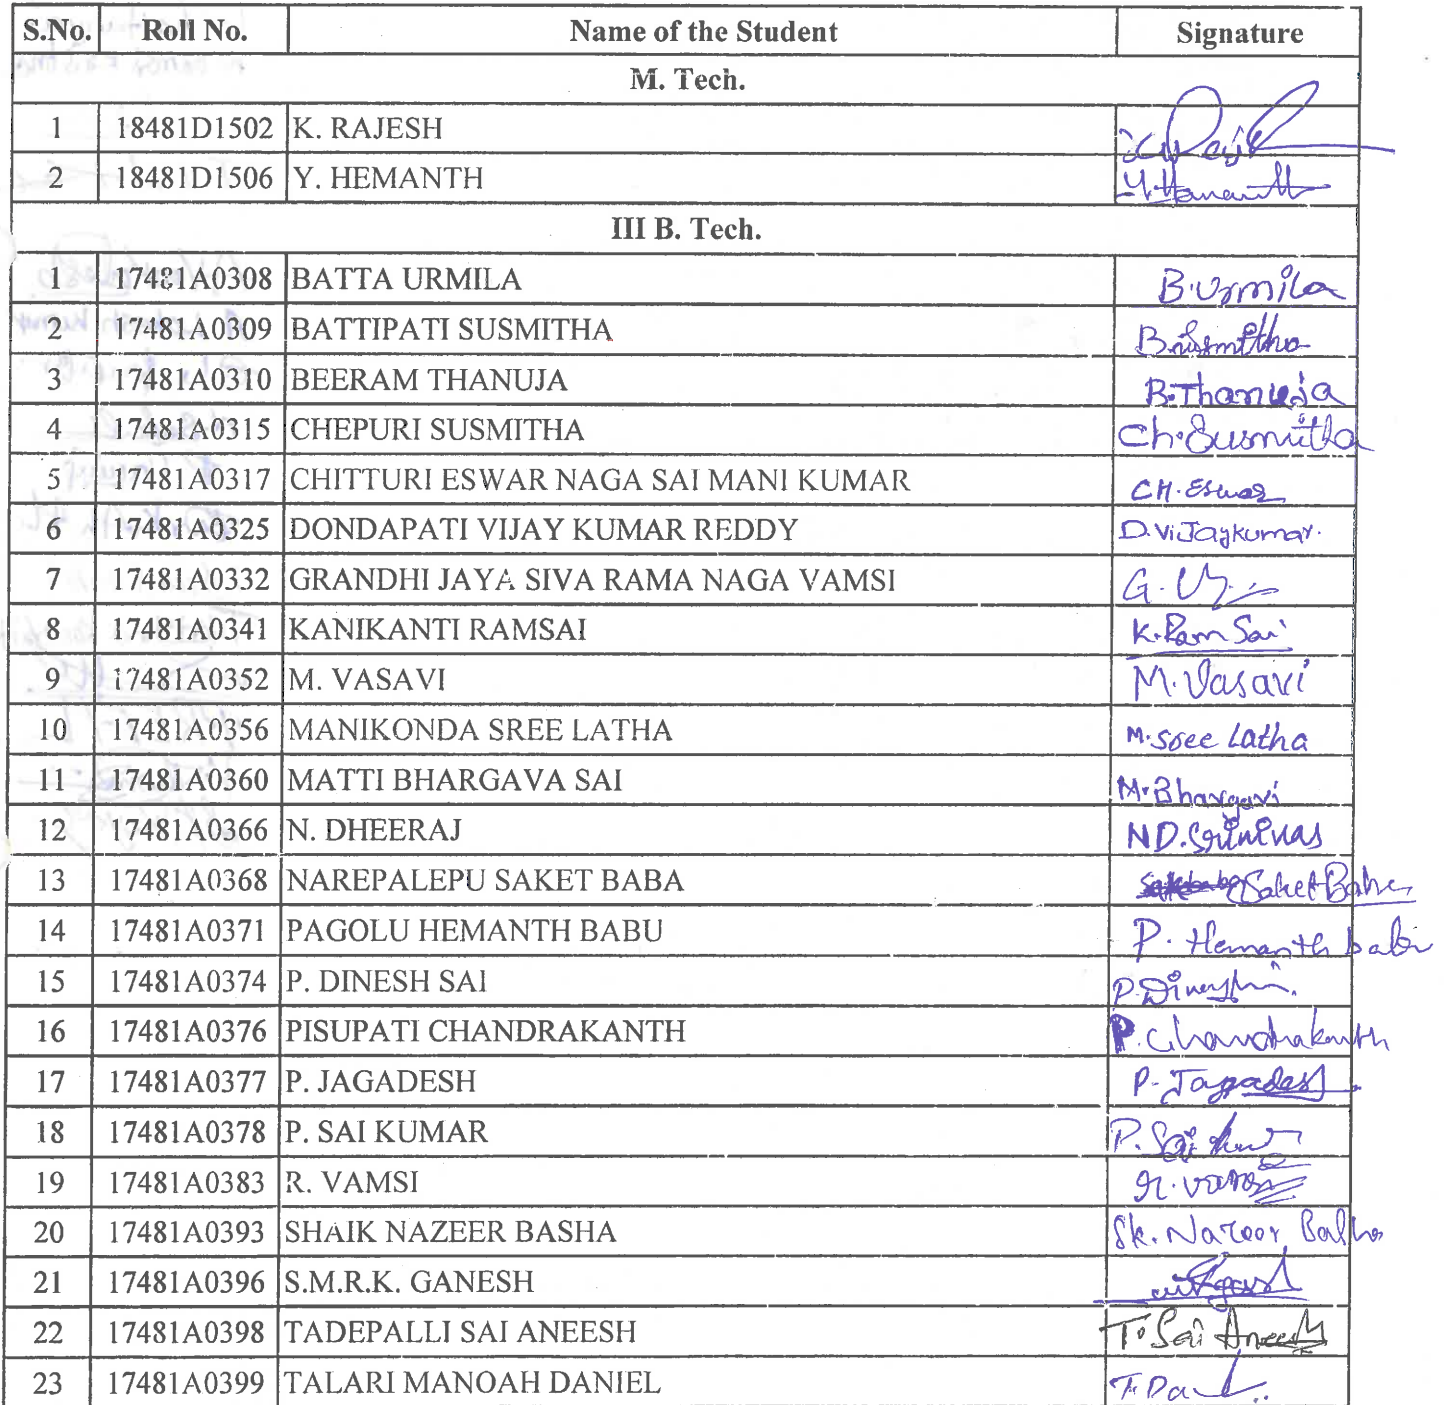 S.No. Roll No. Name of the Student Signature
M. Tech.
1 18481D1502 K. RAJESH
2 18481D1506 Y. HEMANTH Y. Hemanth
III B. Tech.
1 17481A0308 BATTA URMILA B. Urmila
2 17481A0309 BATTIPATI SUSMITHA B. Susmitha
3 17481A0310 BEERAM THANUJA B. Thanuja
4 17481A0315 CHEPURI SUSMITHA Ch. Susmitha
5 17481A0317 CHITTURI ESWAR NAGA SAI MANI KUMAR CH. Eswar
6 17481A0325 DONDAPATI VIJAY KUMAR REDDY D. ViJaykumar.
7 17481A0332 GRANDHI JAYA SIVA RAMA NAGA VAMSI G.
8 17481A0341 KANIKANTI RAMSAI K. Ram Sai
9 17481A0352 M. VASAVI M. Vasavi
10 17481A0356 MANIKONDA SREE LATHA M. Sree Latha
11 17481A0360 MATTI BHARGAVA SAI M. Bhargavi
12 17481A0366 N. DHEERAJ ND. Srinivas
13 17481A0368 NAREPALEPU SAKET BABA Saket Baba
14 17481A0371 PAGOLU HEMANTH BABU P. Hemanth babu
15 17481A0374 P. DINESH SAI P. Dinesh
16 17481A0376 PISUPATI CHANDRAKANTH P. Chandrakanth
17 17481A0377 P. JAGADESH P. Jagadesh
18 17481A0378 P. SAI KUMAR P. Sai
19 17481A0383 R. VAMSI R. Vamsi
20 17481A0393 SHAIK NAZEER BASHA Sk. Nazeer Basha
21 17481A0396 S.M.R.K. GANESH
22 17481A0398 TADEPALLI SAI ANEESH T. Sai Aneesh
23 17481A0399 TALARI MANOAH DANIEL T. Da